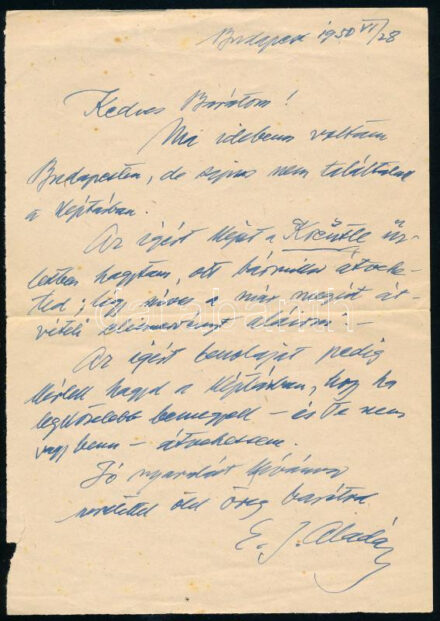 Budapest 1950 VI/28
Kedves Barátom!
Ma idebenn voltam
Budapesten, de sajnos nem találtalak
a Képtárban.
Az igért képet a Kreutle üz-
letben hagytam, ott bármikor átvehe-
ted; légy szíves a már megírt át-
vételi elismervényt aláírni –
Az igért pedig
kérlek hagyd a Képtárban, hogy ha
legközelebb bemegyek – és Te nem
vagy benn – átvehessem.
Jó nyaralást kívánva
szeretettel ölel öreg barátod
E. J. Aladár
darabanth